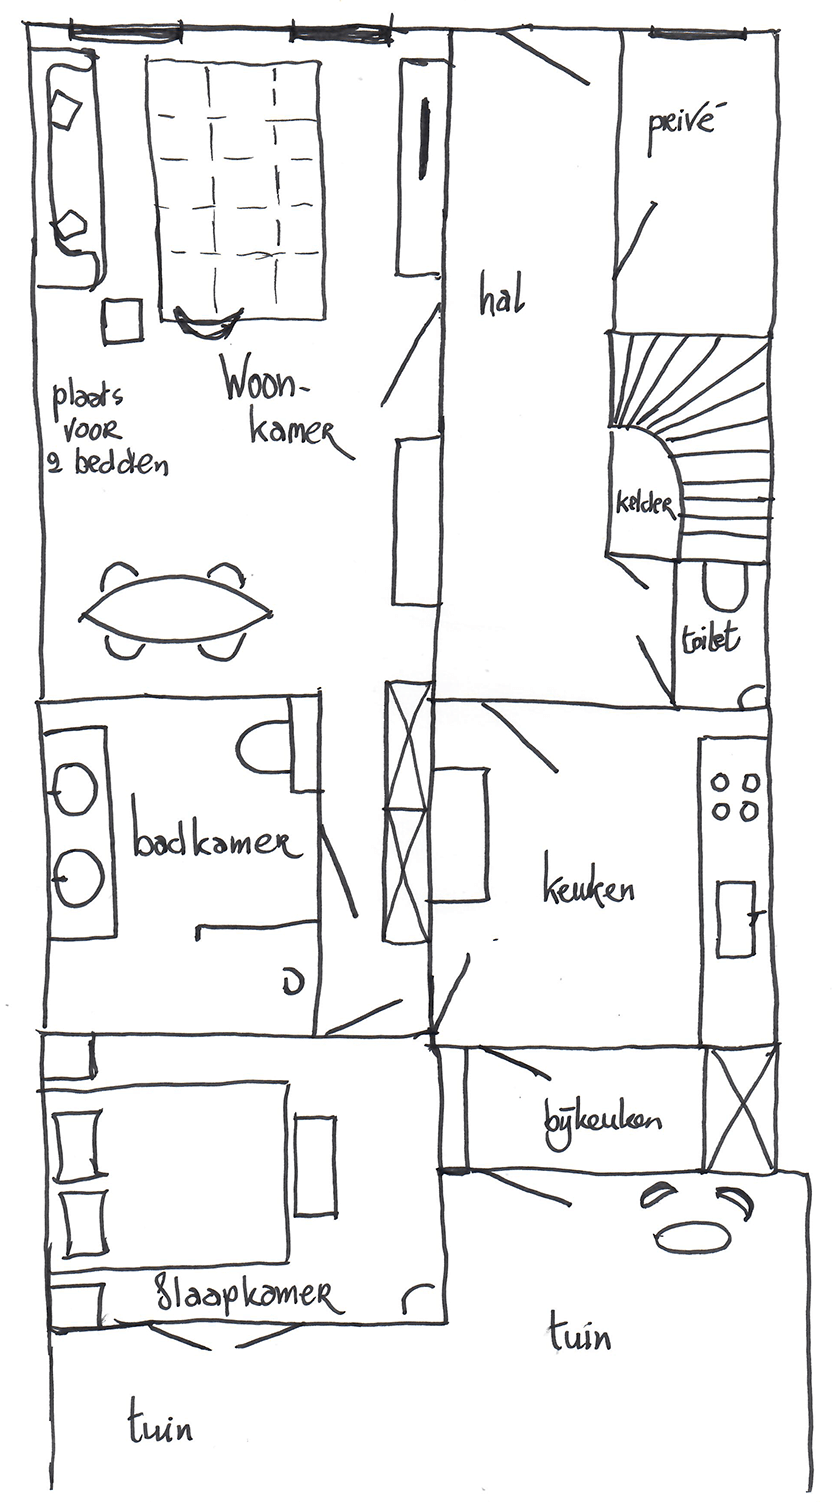 privé
hal
Woon-
kamer
plaats
voor
2 bedden
kelder
toilet
badkamer
keuken
bijkeuken
Slaapkamer
tuin
tuin